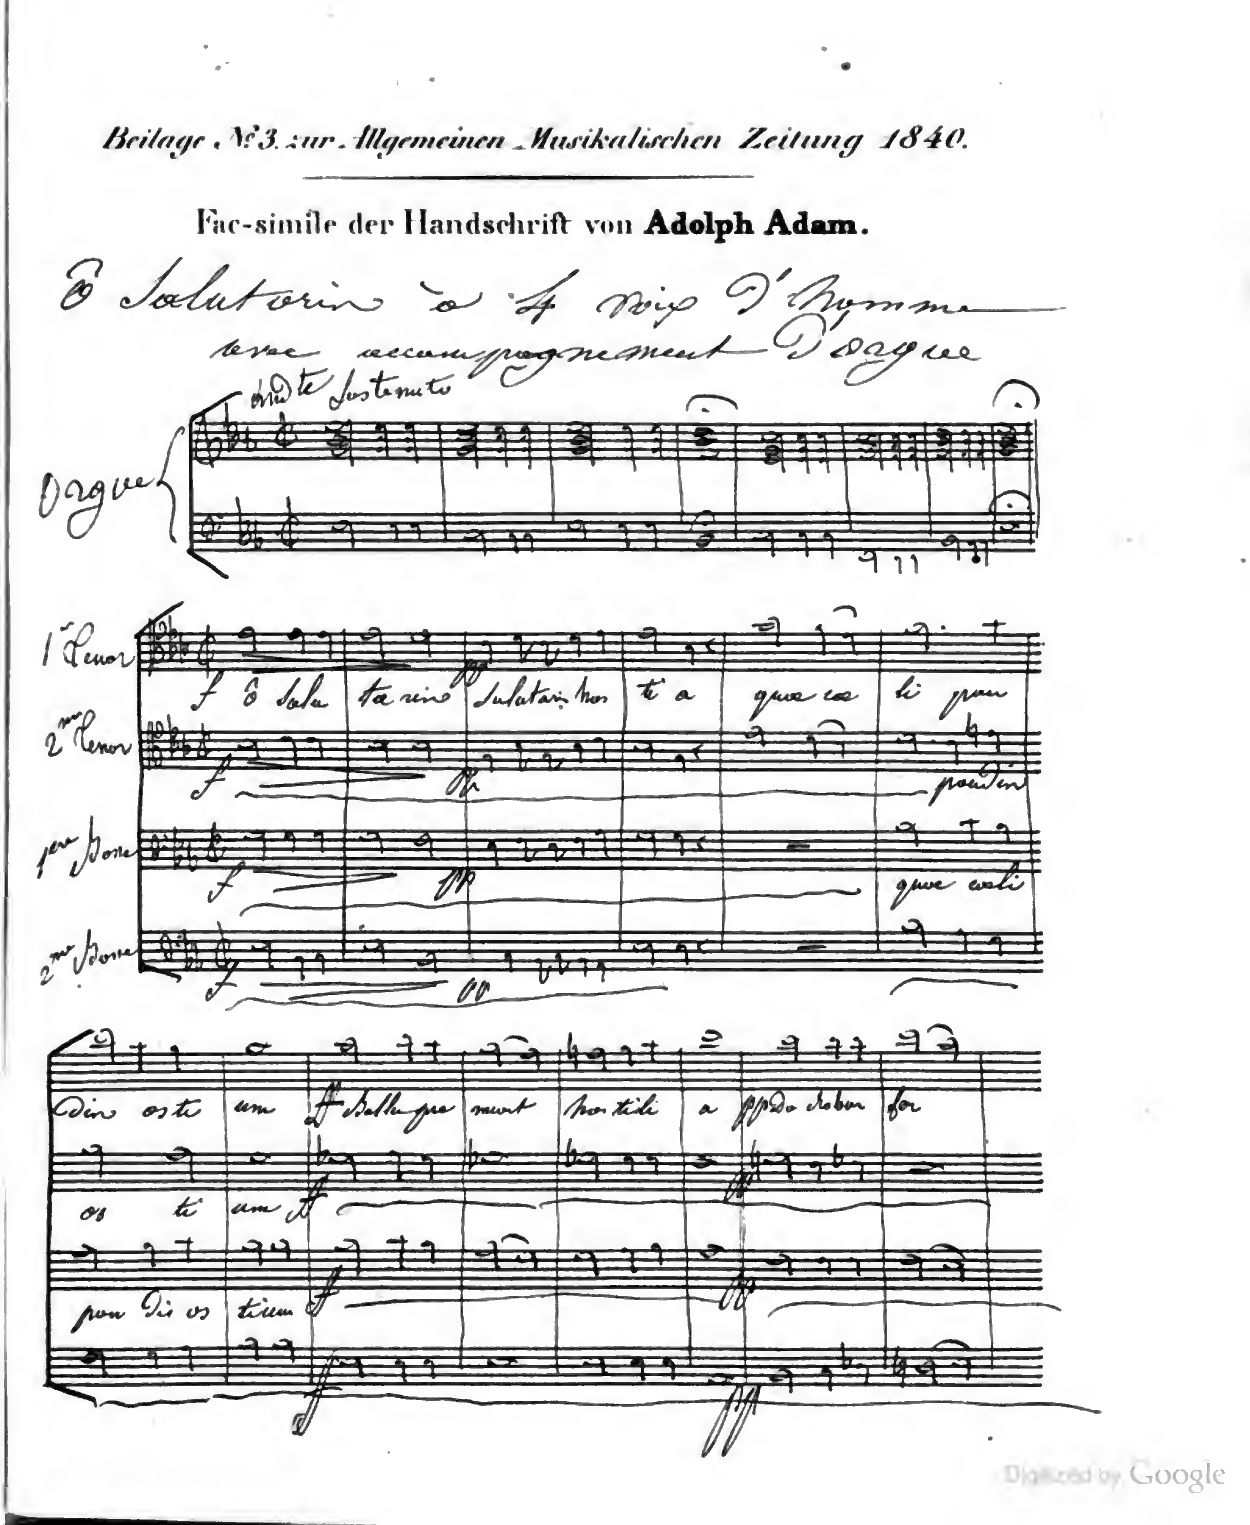 Beilage Nº 3. zur Allgemeinen Musikalischen Zeitung 1840.
Fac-simile der Handschrift von Adolph Adam.
ô Salutarin à 4 voix d'homme
avec accompagnement d'orgue
And.te Sostenuto
Orgue
1er Tenor
f ô Salu ta rin pp Salutaris hos ti a quae coe li pan
2me Tenor
f pp pandin
1ere Basse
f pp quae coeli
2me Basse
f pp
din osti um ff Bella pre munt hos tili a pp da robur fer
os ti um ff pp
pan dis os tium ff pp
ff pp
Digitized by Google